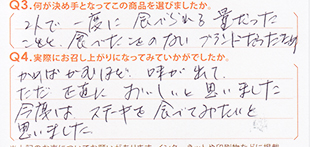 Q3.何が決め手となってこの商品を選びましたか。
2人で一度に食べられる量だった
ことと、食べたことのないブランドだったため
Q4.実際にお召し上がりになってみていかがでしたか。
かめばかむほど、味が出て、
ただ正直においしいと思いました
今度はステーキを食べてみたいと
思いました。